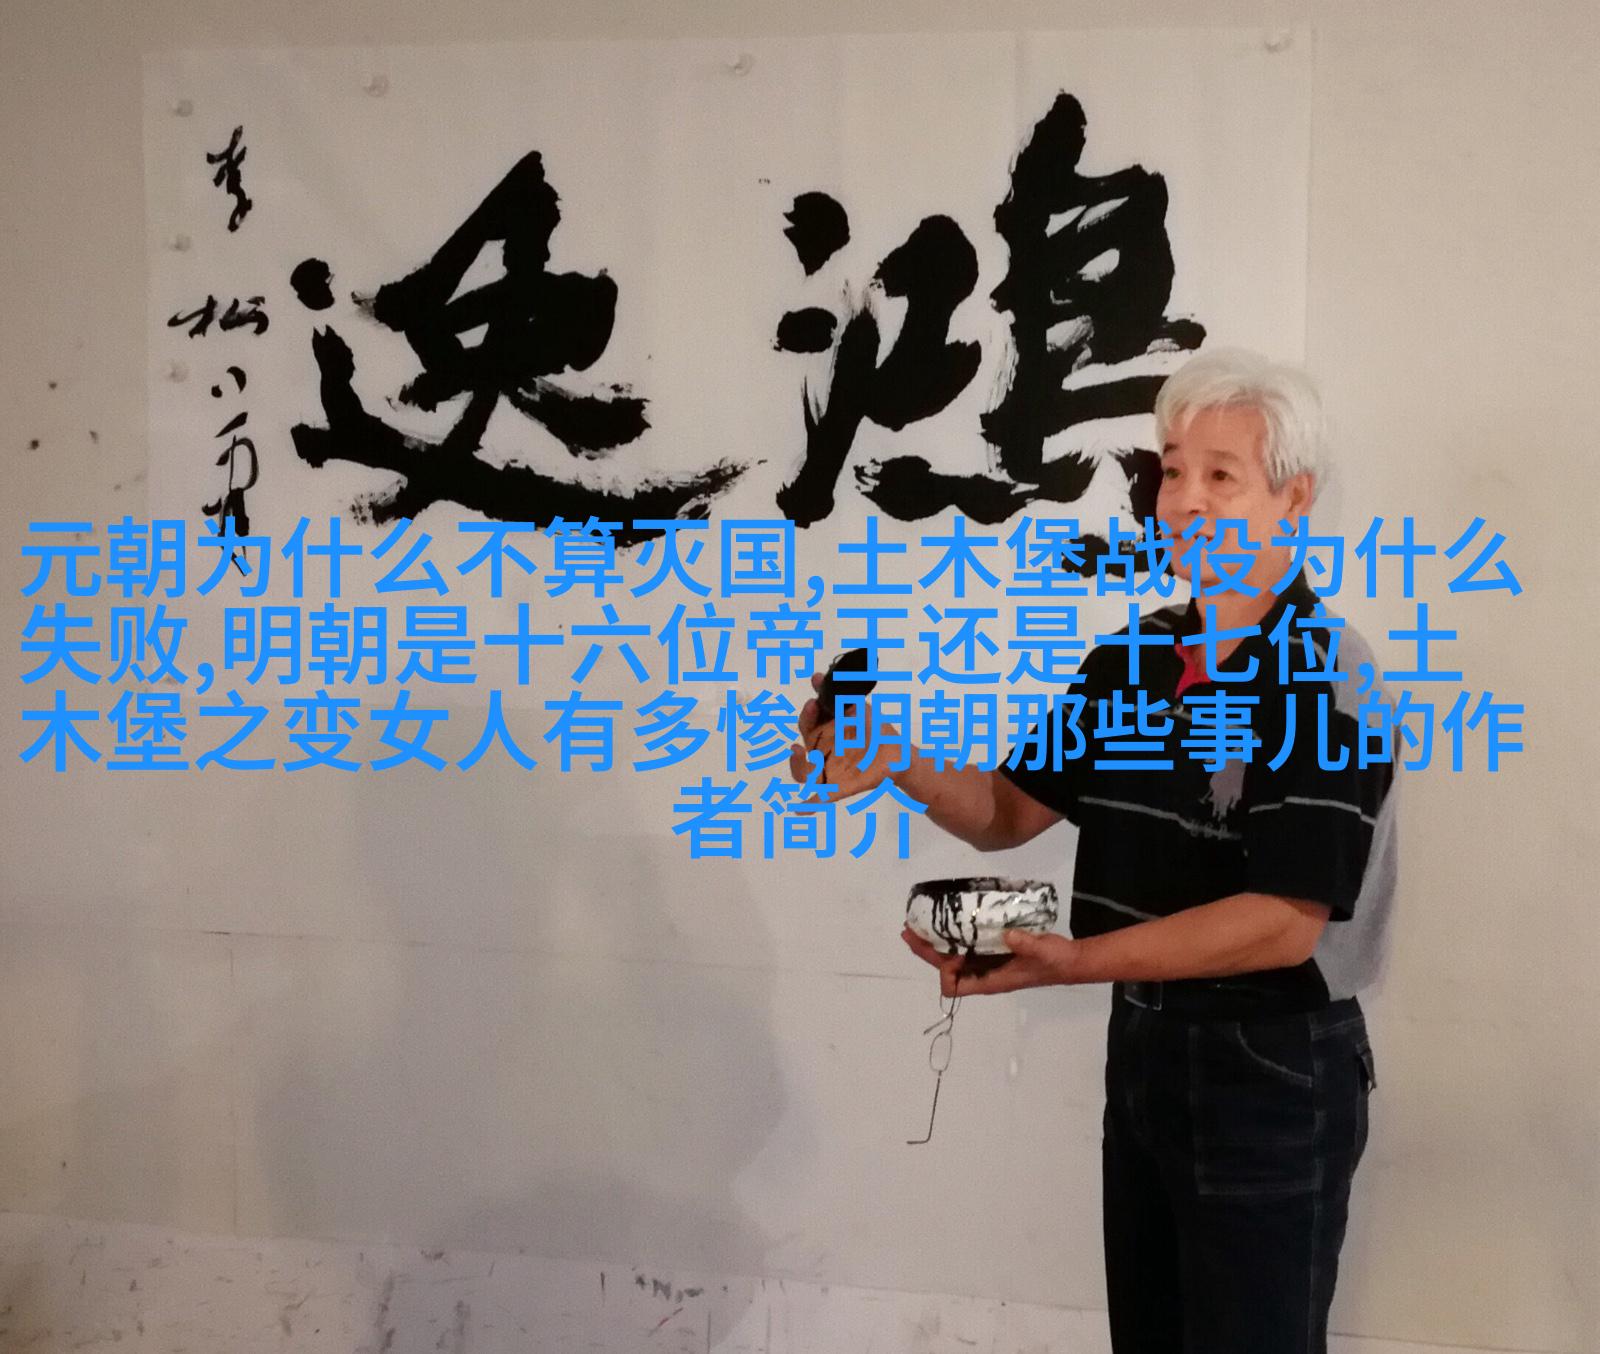 鸿逸
李松
元朝为什么不算灭国,土木堡战役为什么
失败,明朝是十六位帝王还是十七位,土
木堡之变女人有多惨,明朝那些事儿的作
者简介